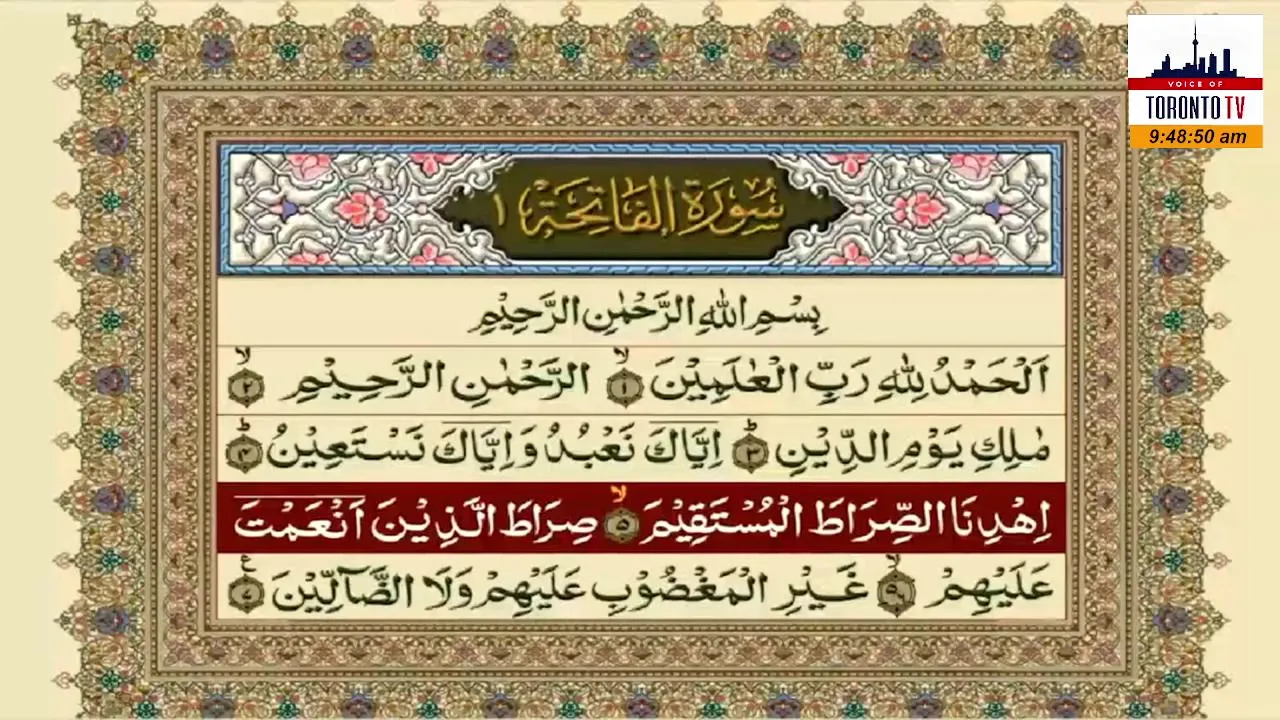 VOICE OF
TORONTO TV
9:48:50 am
سُوْرَةُ الْفَاتِحَةِ ١
بِسْمِ اللهِ الرَّحْمٰنِ الرَّحِيْمِ
اَلْحَمْدُ لِلّٰهِ رَبِّ الْعٰلَمِيْنَ ۙ﴿١﴾ الرَّحْمٰنِ الرَّحِيْمِ ۙ﴿٢﴾
مٰلِكِ يَوْمِ الدِّيْنِ ؕ﴿٣﴾ اِيَّاكَ نَعْبُدُ وَاِيَّاكَ نَسْتَعِيْنُ ؕ﴿٤﴾
اِهْدِنَا الصِّرَاطَ الْمُسْتَقِيْمَ ۙ﴿٥﴾ صِرَاطَ الَّذِيْنَ اَنْعَمْتَ
عَلَيْهِمْ ۙ﴿٥﴾ غَيْرِ الْمَغْضُوْبِ عَلَيْهِمْ وَلَا الضَّآلِّيْنَ ﴿٧﴾ ع